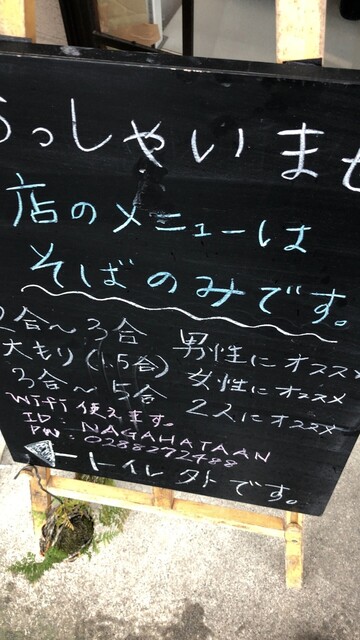 らっしゃいませ
店のメニューは
そばのみです。
2合〜3合 男性にオススメ
大もり(1.5合) 女性にオススメ
3合〜5合 2人にオススメ
Wifi使えます。
ID: NAGAHATAAN
PW: 0288272488
←トイレ外です。